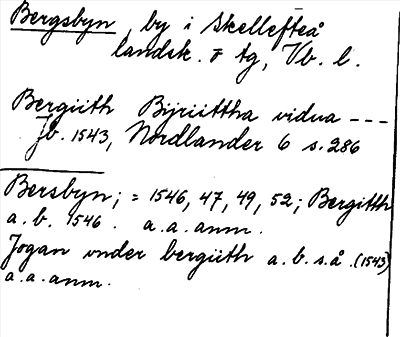 Bergsbyn, by i Skellefteå
landsk. o tg, Vb. l.
Bergiith Biyriittha vidua ---
Jb. 1543, Nordlander 6 s. 286
Bersbyn; = 1546, 47, 49, 52; Bergitth
a.b. 1546. a.a. anm.
Jogan vnder bergiith a.b. s.å. (1543)
a.a. anm.